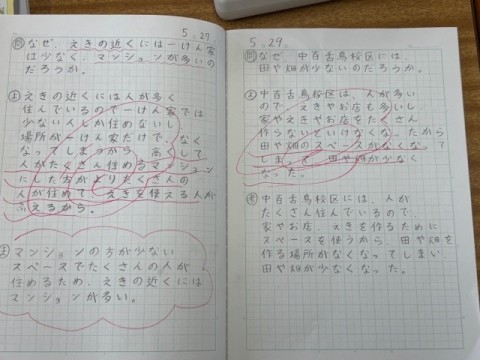 5.27
問 なぜ、えきの近くには一けん家
は少なく、マンションが多いの
だろうか。
よ えきの近くには人が多く
住んでいるので一けん家では
少ない人しか住めないし
場所が一けん家だけで、なく
なってしまうから、高くして
人がたくさん住めるマンション
にした方がよりたくさんの
人が住めて、えきを使える人が
ふえるから。
ま マンションの方が少ない
スペースでたくさんの人が
住めるため、えきの近くには
マンションが多い。
5.29.
問 なぜ、中百舌鳥校区には、
田や畑が少ないのだろうか。
よ 中百舌鳥校区は、人が多い
ので、えきやお店も多いし、
家やえきやお店をたくさん
作らないといけなくな、たから
田や畑のスペースがなくなって
しまって、田や畑が少なく
なった。
中百舌鳥校区には、人が
たくさん住んでいるので、
家やお店、えきを作るために
スペースを使うから、田や畑を
作る場所がなくなってしまい
田や畑が少なくなった。